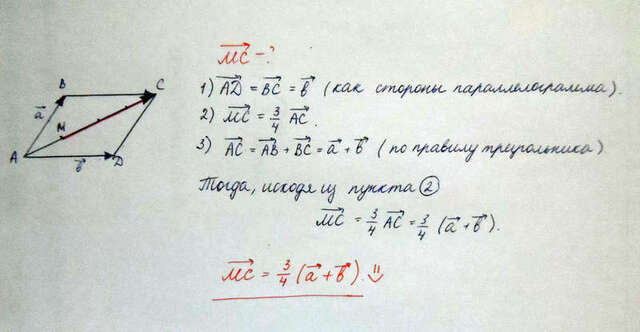 MC⃗ - ?
1) AD⃗ = BC⃗ = b⃗ (как стороны параллелограмма).
2) MC⃗ = 3/4 AC⃗.
3) AC⃗ = AB⃗ + BC⃗ = a⃗ + b⃗ (по правилу треугольника)
Тогда, исходя из пункта ②
MC⃗ = 3/4 AC⃗ = 3/4 (a⃗ + b⃗).
MC⃗ = 3/4 (a⃗ + b⃗). =)
B
C
a⃗
M
A
b⃗
D